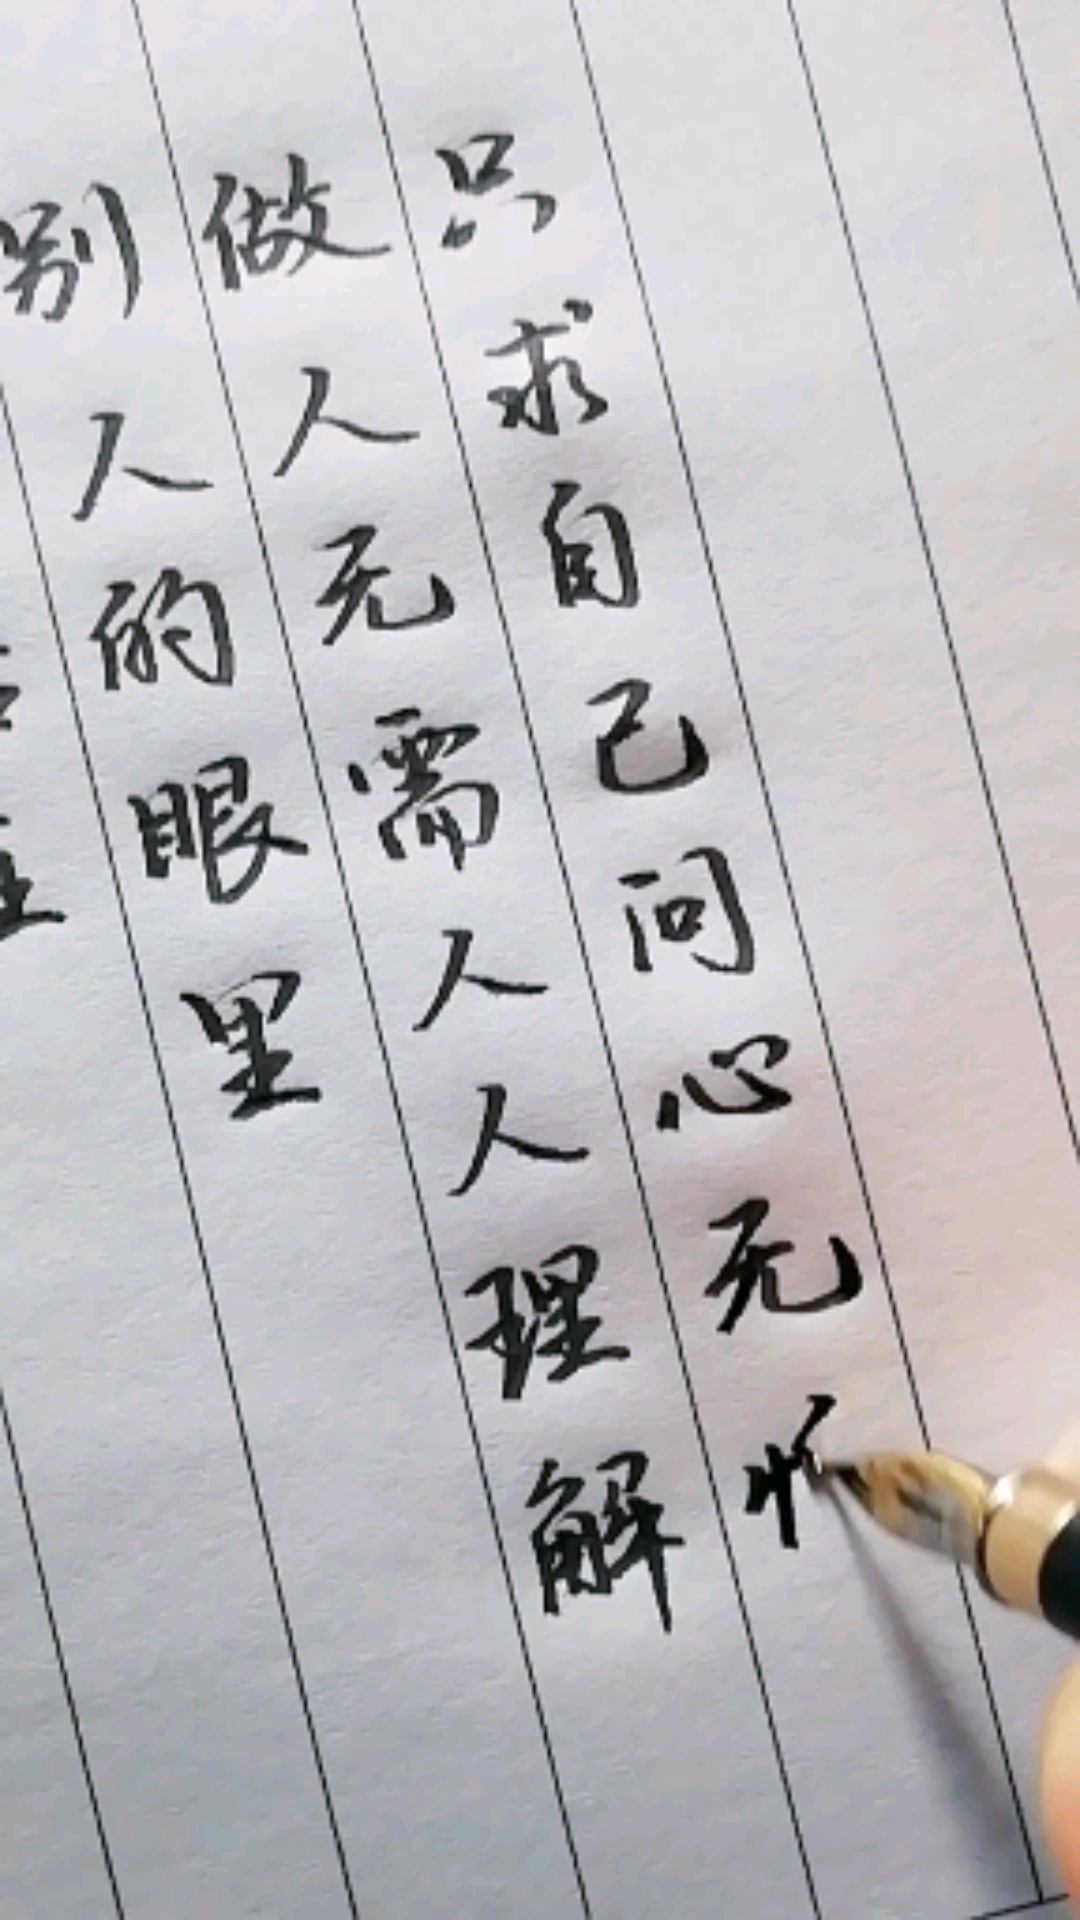 别人的眼里
做人无需人人理解
只求自己问心无